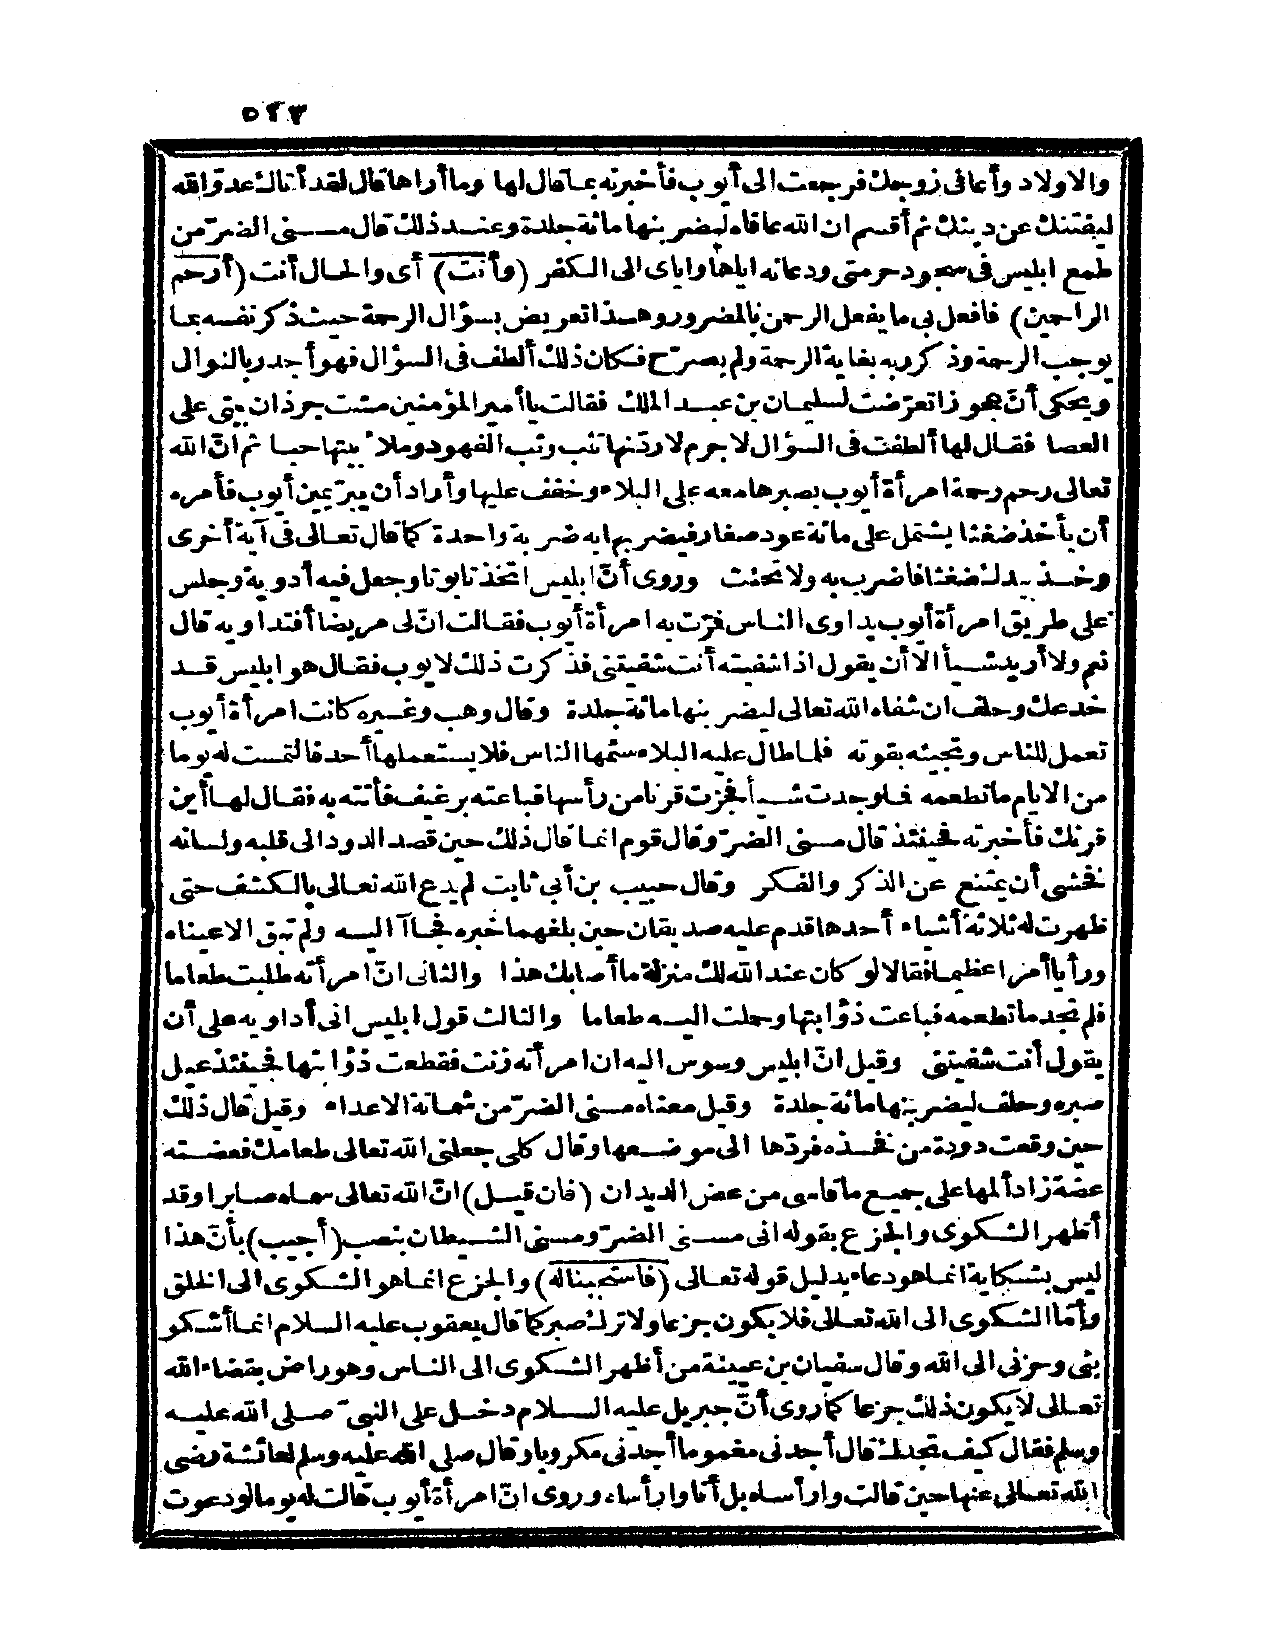 ٥٢٣
والاولاد وأعافى زوجك فرجعت الى أيوب فأخبرته بما قال لها وما أراها قال لقد أتاك عدوّ الله
ليفتنك عن دينك ثم أقسم ان الله عافاه ليضربنها مائة جلدة وعند ذلك قال مسنى الضرّ من
طمع ابليس فى سجود حرمتى ودعائه اياها واياى الى الكفر (وأنت) أى والحال أنت (أرحم
الراحمين) فافعل بى ما يفعل الرحمن بالمضرور وهذا تعريض بسؤال الرحمة حيث ذكر نفسه بما
يوجب الرحمة وذكر ربه بغاية الرحمة ولم يصرّح فكان ذلك ألطف فى السؤال فهو أجدر بالنوال
ويحكى أنّ عجوزا تعرّضت لسليمان بن عبد الملك فقالت يا أمير المؤمنين مشت جرذان بيتى على
العصا فقال لها ألطفت فى السؤال لا جرم لاردّنها تثب وثب الفهود وملأ بيتها حبا ثم انّ الله
تعالى رحم رحمة امرأة أيوب بصبرها معه على البلاء وخفف عليها وأراد أن يبرّ يمين أيوب فأمره
أن يأخذ ضغثا يشتمل على مائة عود صغار فيضربها به ضربة واحدة كما قال تعالى فى آية أخرى
وخذ بيدك ضغثا فاضرب به ولا تحنث وروى أنّ ابليس اتخذ تابوتا وجعل فيه أدوية وجلس
على طريق امرأة أيوب يداوى الناس فمرّت به امرأة أيوب فقالت انّ لى مريضا أفتداويه قال
نم ولا أريد شيأ الا أن يقول اذا شفيته أنت شفيتنى فذكرت ذلك لايوب فقال هو ابليس قد
خدعك وحلف ان شفاه الله تعالى ليضربنها مائة جلدة وقال وهب وغيره كانت امرأة أيوب
تعمل للناس وتجيئه بقوته فلما طال عليه البلاء سئمها الناس فلا يستعملها أحد فالتمست له يوما
من الايام ما تطعمه فما وجدت شيأ فجزت قرنا من رأسها فباعته برغيف فأتته به فقال لها أين
قرنك فأخبرته فحينئذ قال مسنى الضرّ وقال قوم انما قال ذلك حين قصد الدود الى قلبه ولسانه
فخشى أن يمتنع عن الذكر والفكر وقال حبيب بن أبى ثابت لم يدع الله تعالى بالكشف حتى
ظهرت له ثلاثة أشياء أحدها قدم عليه صديقان حين بلغهما خبره فجاآ اليه ولم تبق الا عيناه
ورأيا أمرا عظيما فقالا لو كان عند الله لك منزلة ما أصابك هذا والثانى انّ امرأته طلبت طعاما
فلم تجد ما تطعمه فباعت ذؤابتها وحملت اليه طعاما والثالث قول ابليس انى أداويه على أن
يقول أنت شفيتنى وقيل انّ ابليس وسوس اليه ان امرأته زنت فقطعت ذؤابتها فحينئذ عيل
صبره وحلف ليضربنها مائة جلدة وقيل معناه مسنى الضرّ من شماتة الاعداء وقيل قال ذلك
حين وقعت دودة من فخذه فردّها الى موضعها وقال كلى جعلنى الله تعالى طعامك فعضته
عضة زاد ألمها على جميع ما قاسى من عض الديدان (فان قيل) انّ الله تعالى سماه صابرا وقد
أظهر الشكوى والجزع بقوله انى مسنى الضرّ ومسنى الشيطان بنصب (أجيب) بأنّ هذا
ليس بشكاية انما هو دعاء بدليل قوله تعالى (فاستجبنا له) والجزع انما هو الشكوى الى الخلق
وأمّا الشكوى الى الله تعالى فلا يكون جزعا ولا ترك صبر كما قال يعقوب عليه السلام انما أشكو
بثى وحزنى الى الله وقال سفيان بن عيينة من أظهر الشكوى الى الناس وهو راض بقضاء الله
تعالى لا يكون ذلك جزعا كما روى أنّ جبريل عليه السلام دخل على النبىّ صلى الله عليه
وسلم فقال كيف تجدك قال أجدنى مغموما أجدنى مكروبا وقال صلى الله عليه وسلم لعائشة رضى
الله تعالى عنها حين قالت وارأساه بل أنا وارأساه وروى انّ امرأة أيوب قالت له يوما لو دعوت